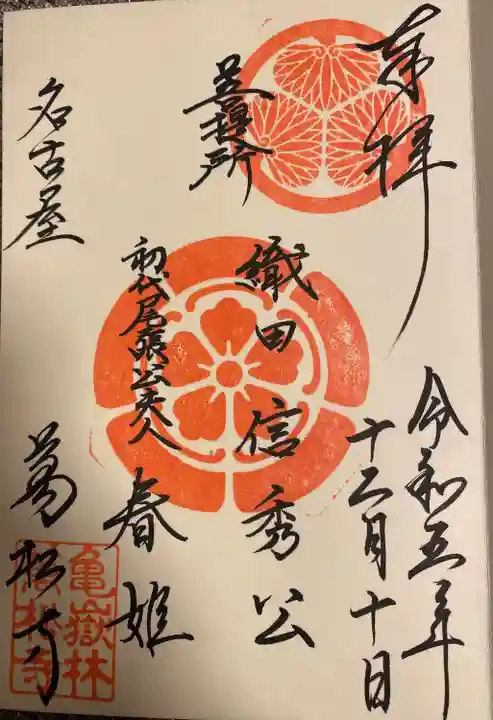 奉拝
令和五年
十二月十日
菩提所
織田信秀公
初代尾張公夫人
春姫
名古屋
萬松寺
亀嶽林
萬松寺